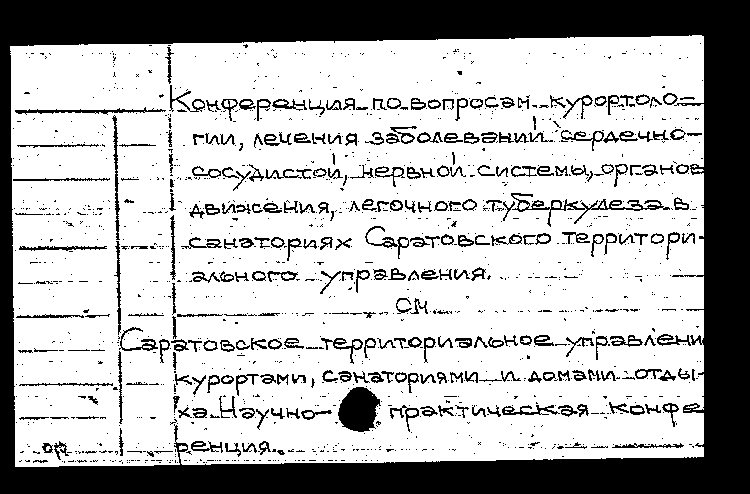 Конференция по вопросам курортоло=
гии, лечения заболеваний сердечно-
сосудистой, нервной системы, органов
движения, легочного туберкулеза в
санаториях Саратовского территори-
ального управления.
см.
Саратовское территориальное управлени
курортами, санаториями и домами отды-
ха. Научно- практическая конфе
ренция.